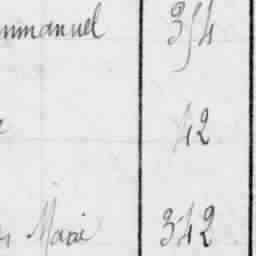 mmanuel 354
42
Marie 342